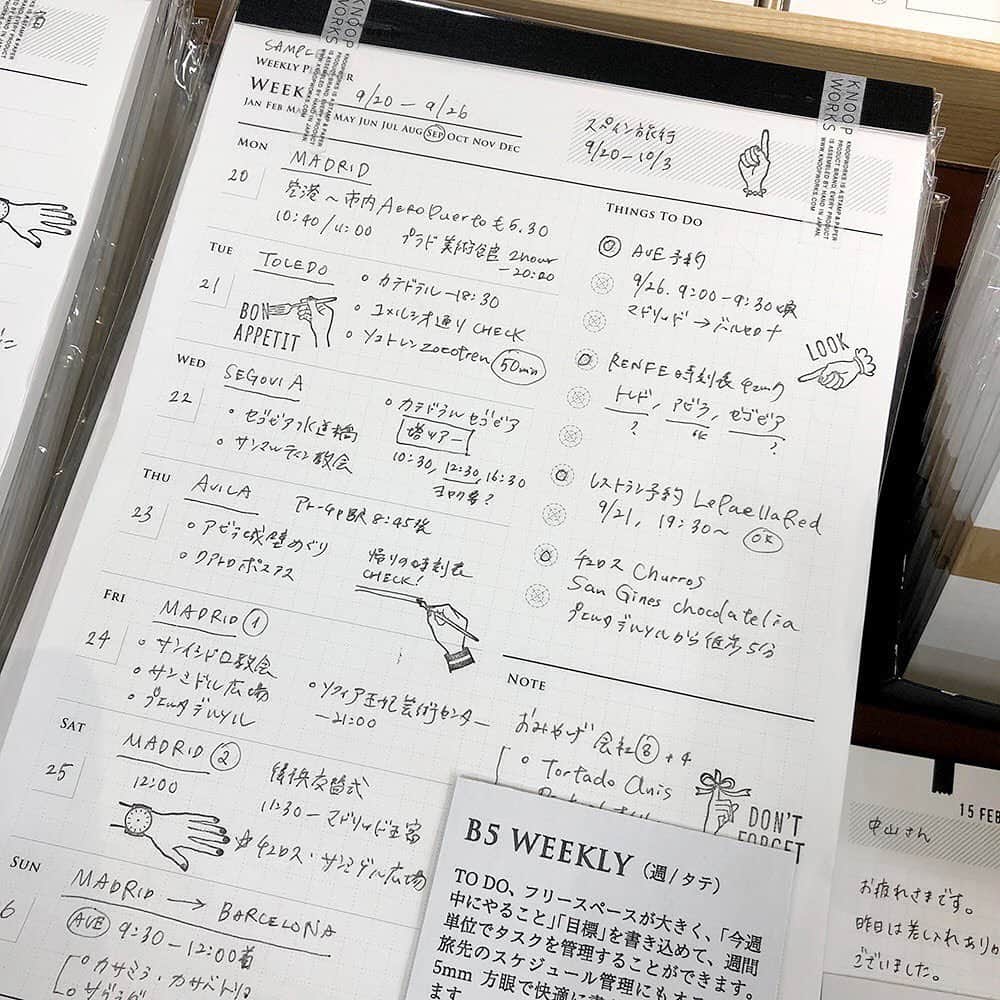 SAMPLE
WEEKLY
WEEK
9/20 — 9/26
JAN FEB MAY JUN JUL AUG SEP OCT NOV DEC
スペイン旅行
9/20-10/3
KNOOP WORKS
KNOOPWORKS IS A STAMP & PAPER
PRODUCT BRAND. EVERY PRODUCT
IS ASSEMBLED BY HAND IN JAPAN.
WWW.KNOOPWORKS.COM
KNOOP
WORKS
KNOOPWORKS IS A STAMP & PAPER
PRODUCT BRAND. EVERY PRODUCT
IS ASSEMBLED BY HAND IN JAPAN.
WWW.KNOOPWORKS.COM
MON
20
MADRID
空港〜市内 AeroPuerto も5.30
10:40/11:00 プラド美術館 2hour
-20:00
TUE
21
TOLEDO
BON
APPETIT
○ カテドラルー18:30
○ コメルシオ通り CHECK
○ ソコトレン zocotren 50min
WED
22
SEGOVIA
○ セゴビア水道橋
○ サンマルティン教会
○ カテドラルセゴビア
塔ツアー
10:30, 12:30, 16:30
THU
23
AVILA
アトーチャ駅 8:45発
○ アビラ城壁めぐり
○ クアトロポスアス
帰りの時刻表
CHECK!
FRI
24
MADRID ①
○ サンイシドロ教会
○ サンミゲル広場
○ プエルタデルソル
○ ソフィア王妃芸術センター
-21:00
SAT
25
MADRID ②
12:00
衛兵交替式
11:30ーマドリッド王宮
チュロス・サンミゲル広場
SUN
6
MADRID → BARCELONA
AVE 9:30-12:00着
○ カサミラ・カサバトリョ
○ サグラダ
THINGS TO DO
AVE 予約
9/26. 9:00-9:30頃
マドリッド→バルセロナ
LOOK
RENFE 時刻表 チェック
トレド, アビラ, セゴビア
? OK ?
レストラン予約 LePaellaRed
9/21, 19:30〜 OK
チュロス Churros
San Gines chocolatelia
プエルタデルソルから徒歩5分
NOTE
おみやげ 会社⑧+4
○ Tortado Anis
DON'T
FORGET
B5 WEEKLY（週/タテ）
TO DO、フリースペースが大きく、「今週
中にやること」「目標」を書き込めて、週間
単位でタスクを管理することができます。
旅先のスケジュール管理にもオ
5mm 方眼で快適に書
ます
15 FEB
中山さん
お疲れさまです。
昨日は差し入れありが
ございました。